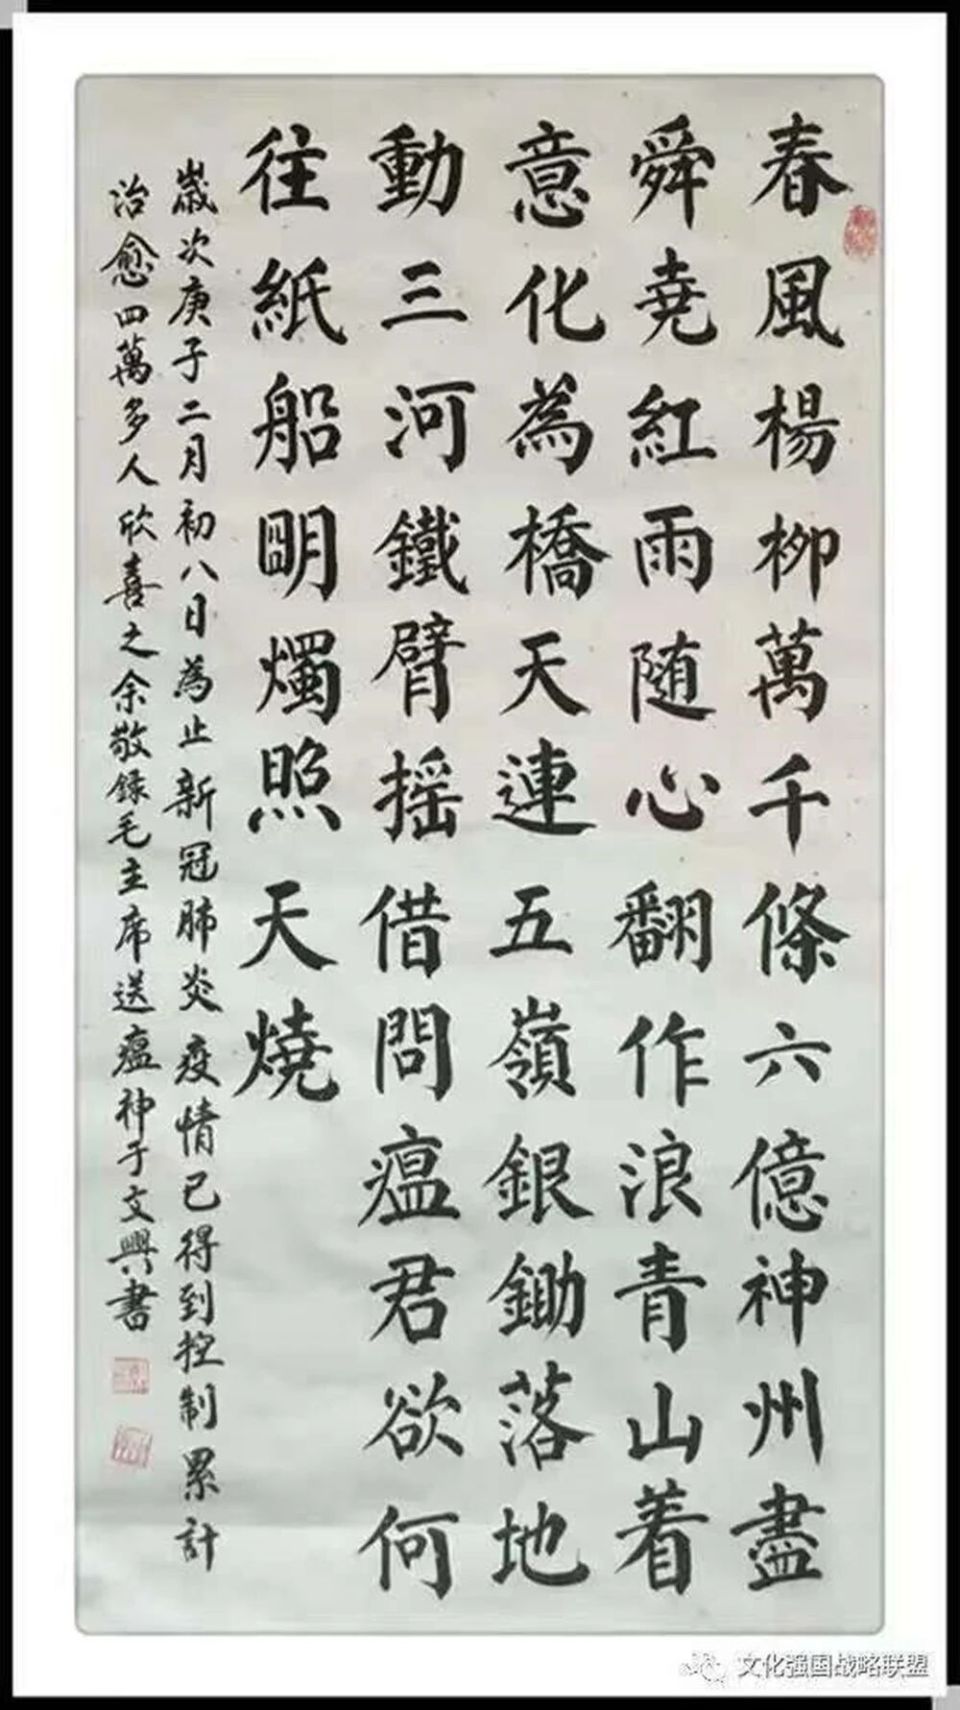 春風楊柳萬千條六億神州盡
舜堯紅雨随心翻作浪青山着
意化為橋天連五嶺銀鋤落地
動三河鐵臂摇借問瘟君欲何
往紙船明燭照天燒
歲次庚子二月初八日為止新冠肺炎疫情已得到控制累計
治愈四萬多人欣喜之余敬録毛主席送瘟神于文興書
文化强国战略联盟